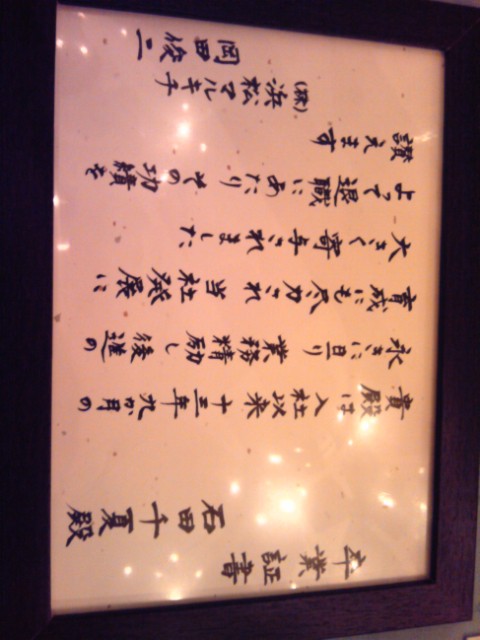 卒業証書
石田千夏殿
貴殿は入社以来十三年九か月の
永きに旦り業務精励し後進の
育成にも尽力され当社発展に
大きく寄与されました
よって退職にあたりその功績を
讃えます
(株)浜松マルキチ
岡田俊二